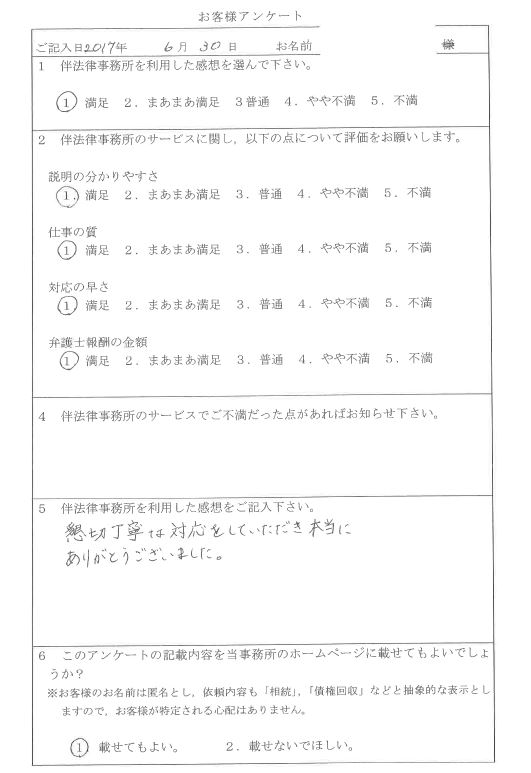 お客様アンケート
ご記入日2017年 6月 30日 お名前 様
1 伴法律事務所を利用した感想を選んで下さい。
1 満足 2．まあまあ満足 3普通 4．やや不満 5．不満
2 伴法律事務所のサービスに関し，以下の点について評価をお願いします。
説明の分かりやすさ
1．満足 2．まあまあ満足 3．普通 4．やや不満 5．不満
仕事の質
1 満足 2．まあまあ満足 3．普通 4．やや不満 5．不満
対応の早さ
1 満足 2．まあまあ満足 3．普通 4．やや不満 5．不満
弁護士報酬の金額
1 満足 2．まあまあ満足 3．普通 4．やや不満 5．不満
4 伴法律事務所のサービスでご不満だった点があればお知らせ下さい。
5 伴法律事務所を利用した感想をご記入下さい。
懇切丁寧な対応をしていただき本当に
ありがとうございました。
6 このアンケートの記載内容を当事務所のホームページに載せてもよいでしょ
うか？
※お客様のお名前は匿名とし，依頼内容も「相続」，「債権回収」などと抽象的な表示とし
ますので，お客様が特定される心配はありません。
1 載せてもよい。 2．載せないでほしい。